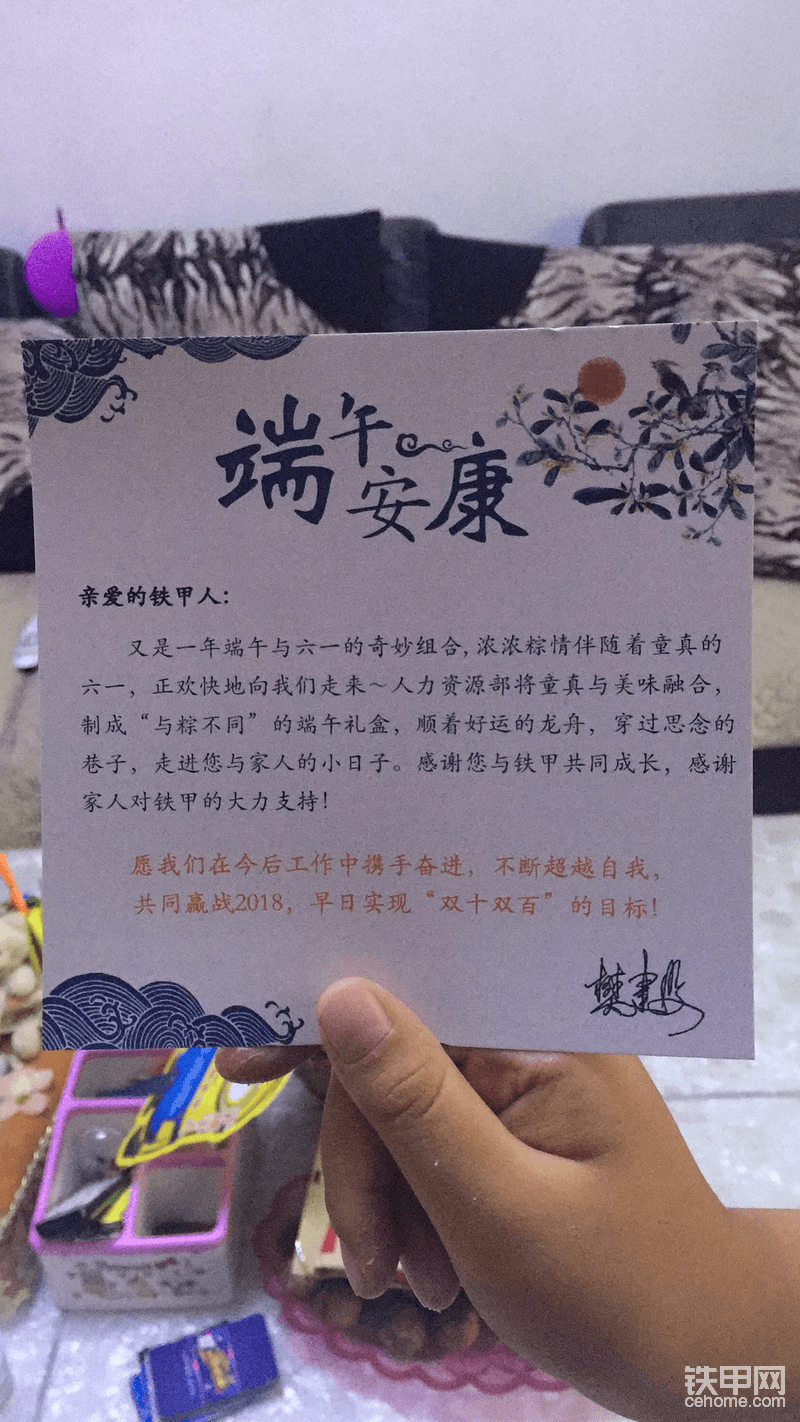 端午安康
亲爱的铁甲人：
又是一年端午与六一的奇妙组合，浓浓粽情伴随着童真的
六一，正欢快地向我们走来～人力资源部将童真与美味融合，
制成“与粽不同”的端午礼盒，顺着好运的龙舟，穿过思念的
巷子，走进您与家人的小日子。感谢您与铁甲共同成长，感谢
家人对铁甲的大力支持！
愿我们在今后工作中携手奋进，不断超越自我，
共同赢战2018，早日实现“双十双百”的目标！
铁甲网
cehome.com